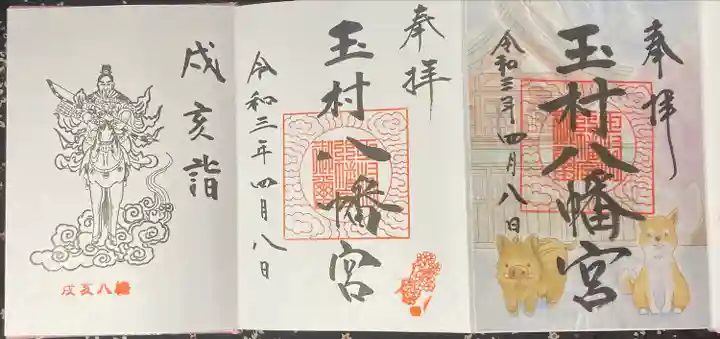 奉拝
玉村八幡宮
令和三年四月八日
奉拝
玉村八幡宮
令和三年四月八日
戌亥詣
戌亥八幡